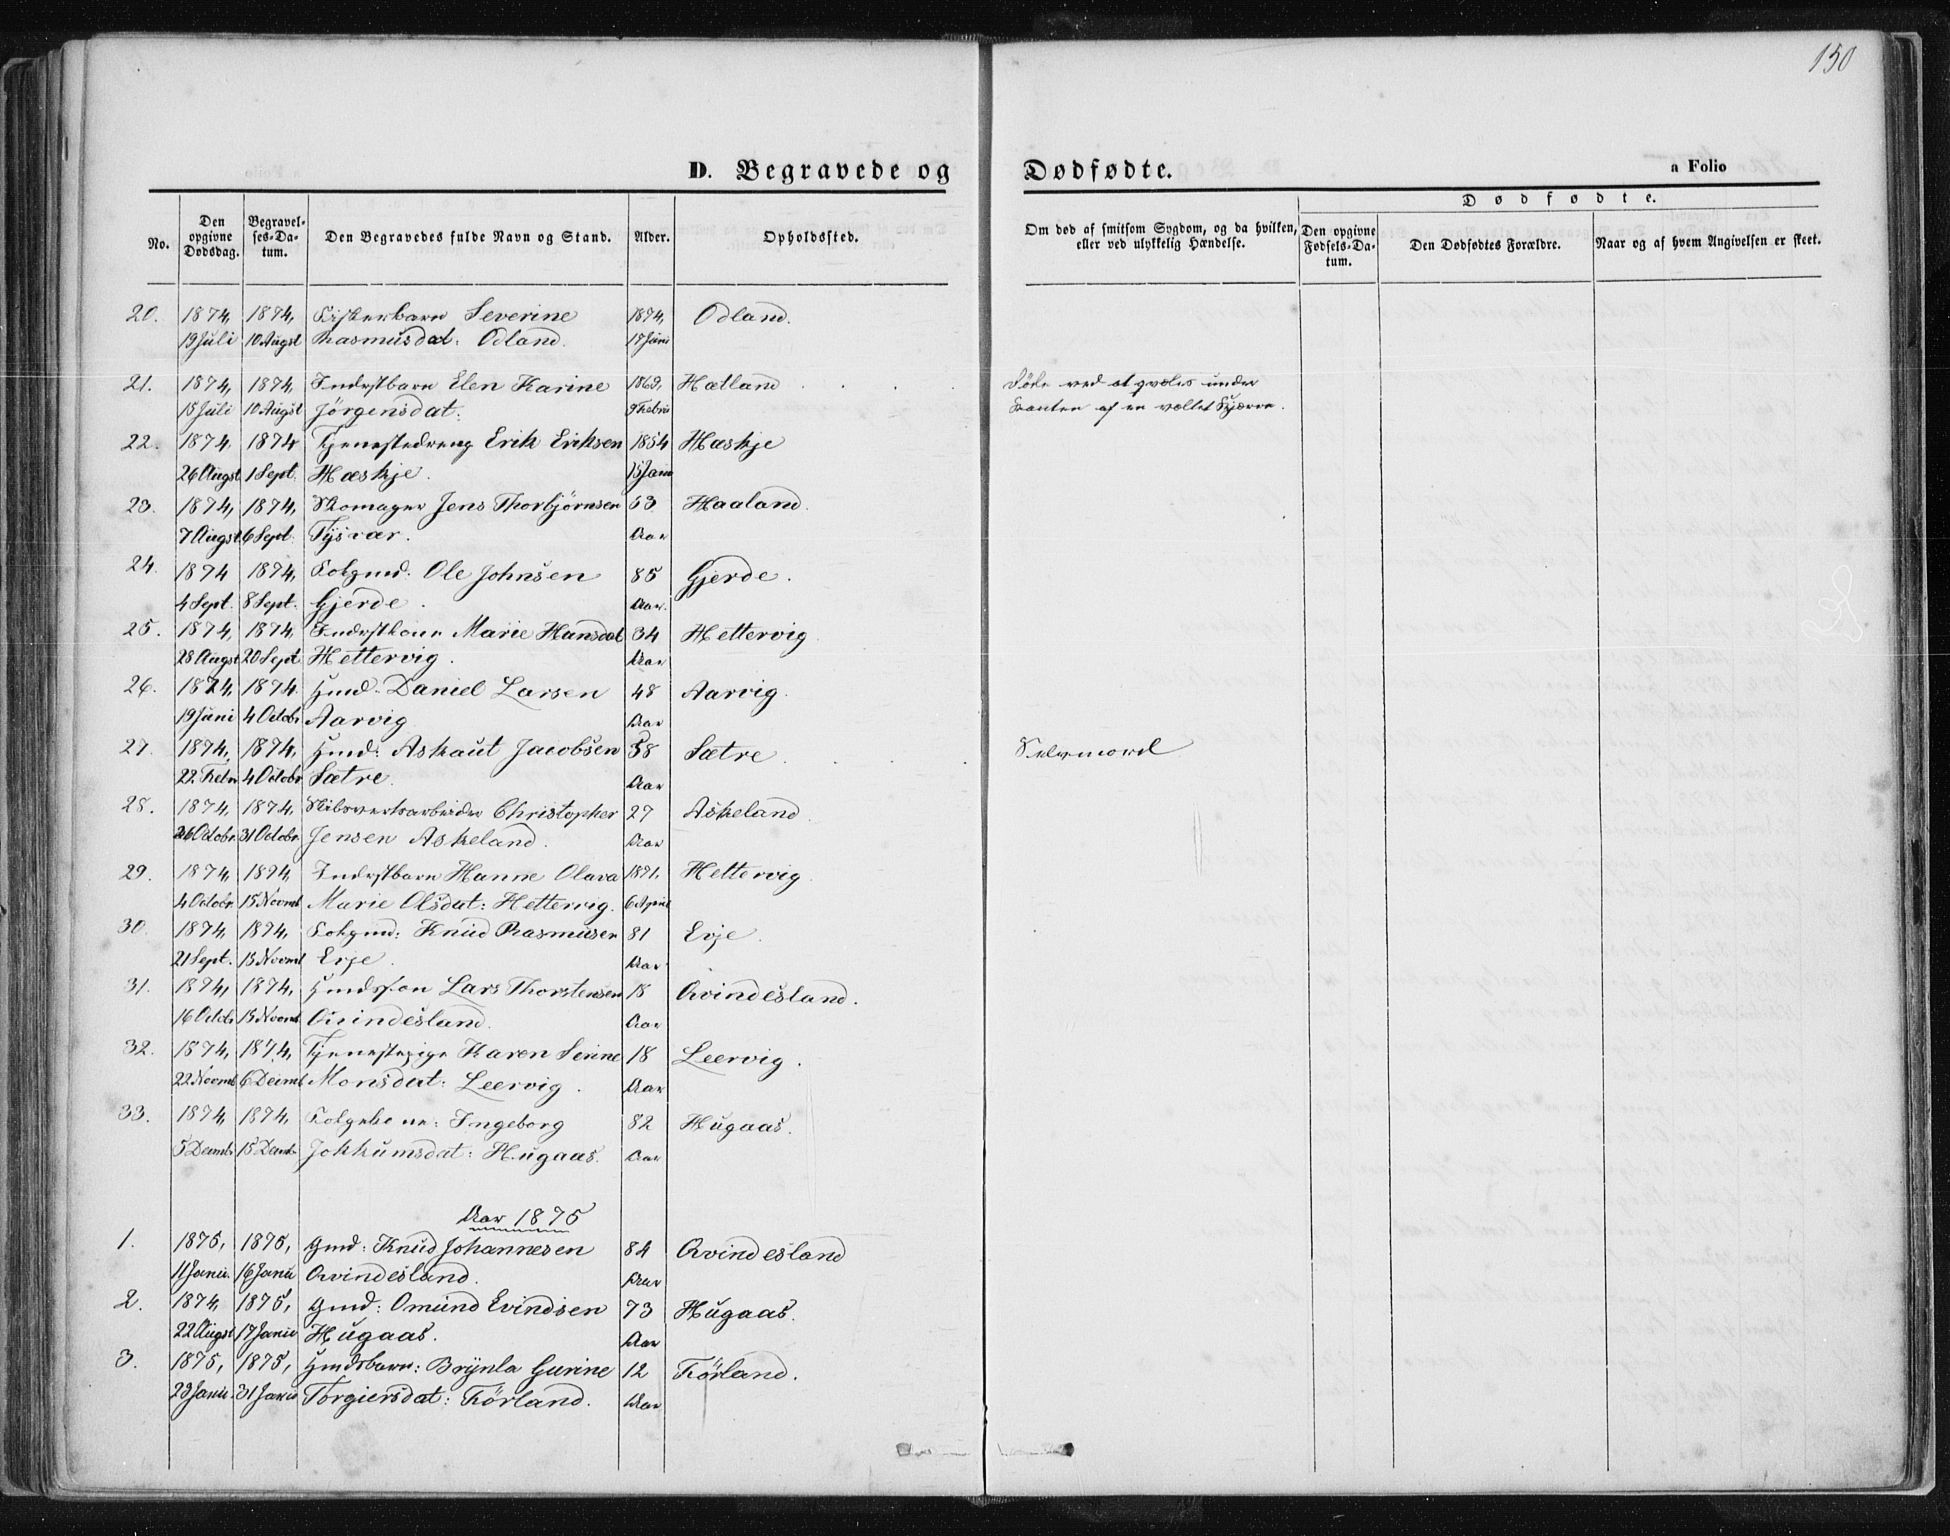 150
D. Begravede og Dødfødte. a Folio
No. Den opgivne Dødsdag. Begravelses-Datum. Den Begravedes fulde Navn og Stand. Alder. Opholdssted. Om død af smitsom Sygdom, og da hvilken, eller ved ulykkelig Hændelse. Dødfødte. Den opgivne Fødsels-Datum. Den Dødfødtes Forældre. Naar og af hvem Angivelsen er skeet.
20. 1874, 1874, Fiskerbarn Severine 1874, Odland.
19 Juli 10 Augst Rasmusdat: Odland. 17 Juni
21. 1874, 1874, Inderstbarn Elen Karine 1869, Hætland Døde ved at qvæles under
15 Juli 10 Augst Jörgensdat: 9 Febr Kanten af en væltet Kjærre.
22. 1874, 1874 Tjenestedreng Erik Eriksen 1854 Hæskje
26 Augst 1 Sept. Hæskje. 15 Janu
23. 1874, 1874, Skomager Jens Thorbjörnsen 53 Haaland.
7 Augst 6 Sept. Tysvær. Aar
24. 1874 1874, Folgmd: Ole Johnsen 85 Gjerde.
4 Sept. 8 Sept. Gjerde. Aar.
25. 1874, 1874, Inderstkone Marie Hansdat 34 Hettervig
28 Augst 20 Sept Hettervig. Aar
26. 1874, 1874. Hmd. Daniel Larsen 48 Aarvig.
19 Juni 4 Octobr Aarvig Aar
27. 1874, 1874, Hmd: Askaut Jacobsen 58 Sætre Selvmord
22. Febr 4 Octobr Sætre. Aar
28. 1874, 1874, Skibsverksarbeider Christopher 27 Askeland
26 Octobr. 31 Octobr. Jensen Askeland. Aar
29. 1874, 1874, Inderstbarn Hanne Olava 1871, Hettervig
4 Octobr. 15 Novmb Marie Olsdat: Hettervig. 6 April
30. 1874, 1874, Folgmd: Knud Rasmusen 81 Evje.
21 Sept. 15 Novmb Evje. Aar
31. 1874, 1874, Hmdsøn Lars Thorstensen 18 Qvindesland.
16 Octobr 15 Novmb. Qvindesland. Aar
32. 1874, 1874, Tjenestepige Karen Serine 18 Leervig.
22 Novmb 6 Decmb Monsdat: Leervig. Aar
33. 1874, 1874, Folgekone: Ingeborg 82 Hugaas.
5 Decmbr 15 Decmbr Jokkumsdat: Hugaas. Aar
Aar 1875
1. 1875, 1875, Gmd: Knud Johannesen 84 Qvindesland
11 Janu. 16 Janu Qvindesland. Aar
2. 1874, 1875, Gmd: Omund Evindsen 73 Hugaas.
22 Augst 17 Janu Hugaas. Aar
3. 1875, 1875, Hmdsbarn: Brynla Gurine 12 Förland.
23 Janu. 31 Janu Torgiersdat: Förland. Aar